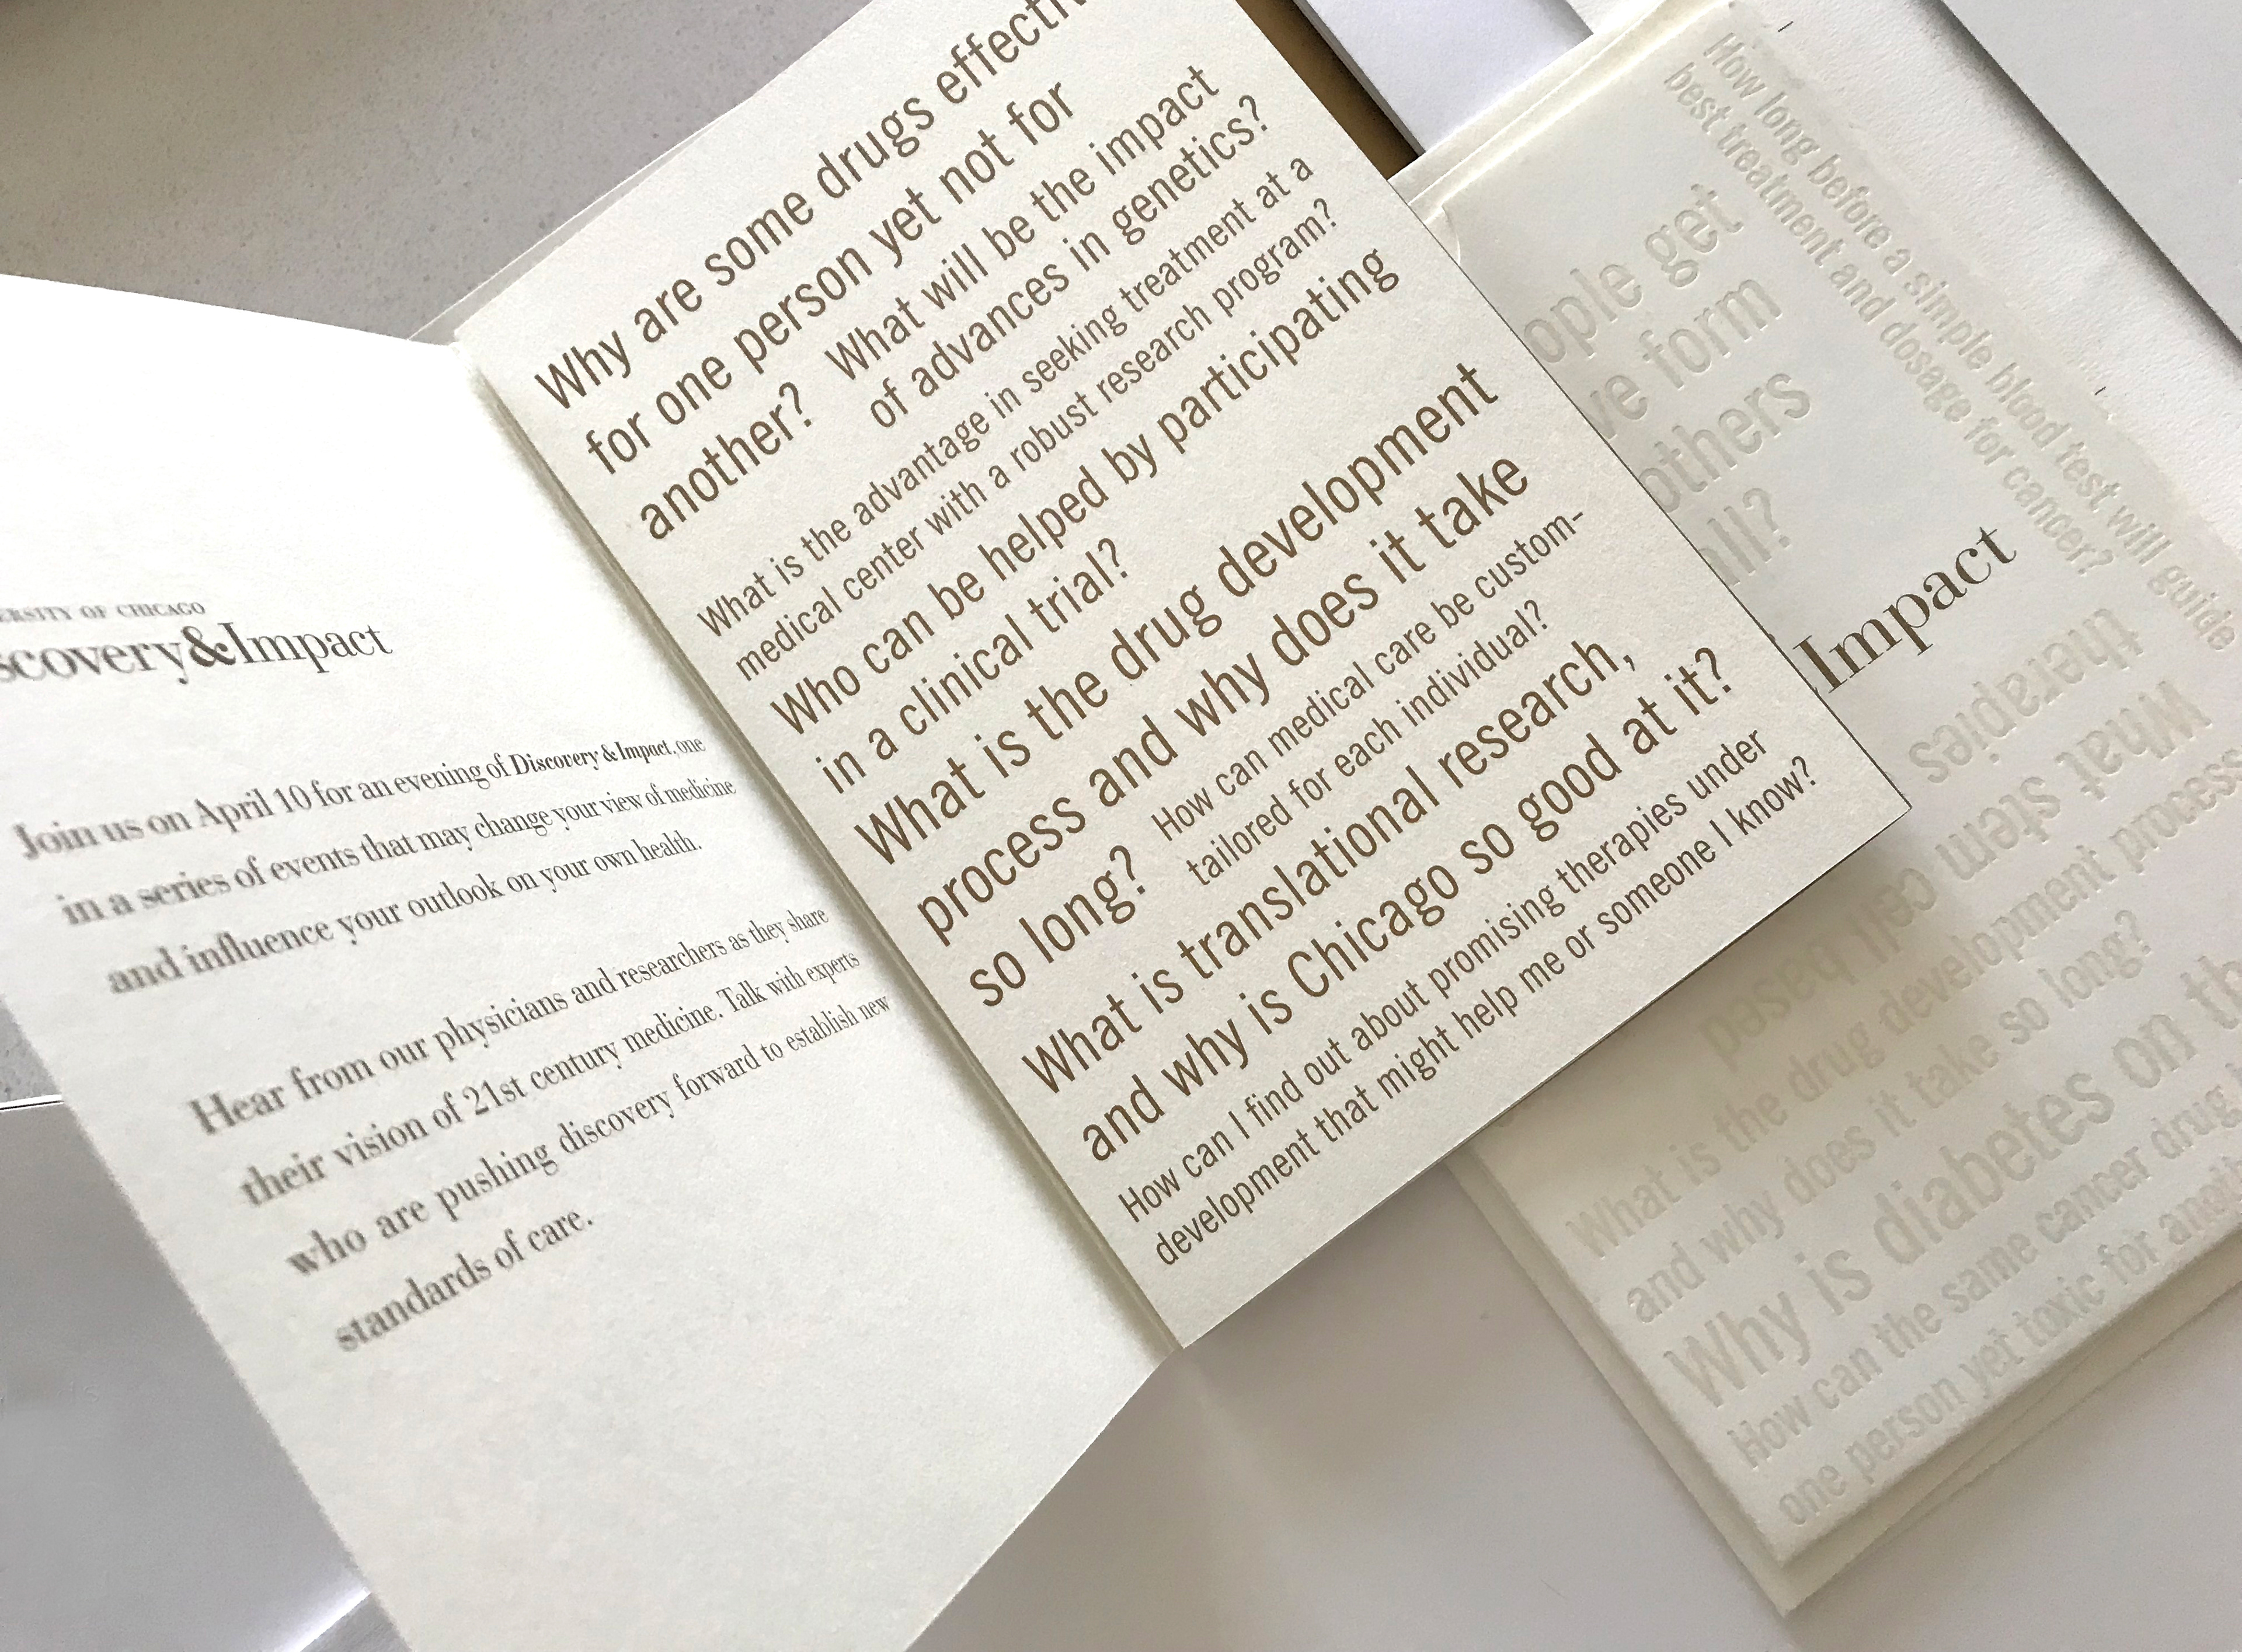 ERSITY OF CHICAGO
scovery&Impact
Join us on April 10 for an evening of Discovery & Impact, one
in a series of events that may change your view of medicine
and influence your outlook on your own health.
Hear from our physicians and researchers as they share
their vision of 21st century medicine. Talk with experts
who are pushing discovery forward to establish new
standards of care.
Why are some drugs effectiv
for one person yet not for
another?
What will be the impact
of advances in genetics?
What is the advantage in seeking treatment at a
medical center with a robust research program?
Who can be helped by participating
in a clinical trial?
What is the drug development
process and why does it take
so long?
How can medical care be custom-
tailored for each individual?
What is translational research,
and why is Chicago so good at it?
How can I find out about promising therapies under
development that might help me or someone I know?
How long before a simple blood test will guide
best treatment and dosage for cancer?
ople get
ve form
others
all?
Impact
What stem cell based
therapies
What is the drug development process
and why does it take so long?
Why is diabetes on th
How can the same cancer drug
one person yet toxic for anoth